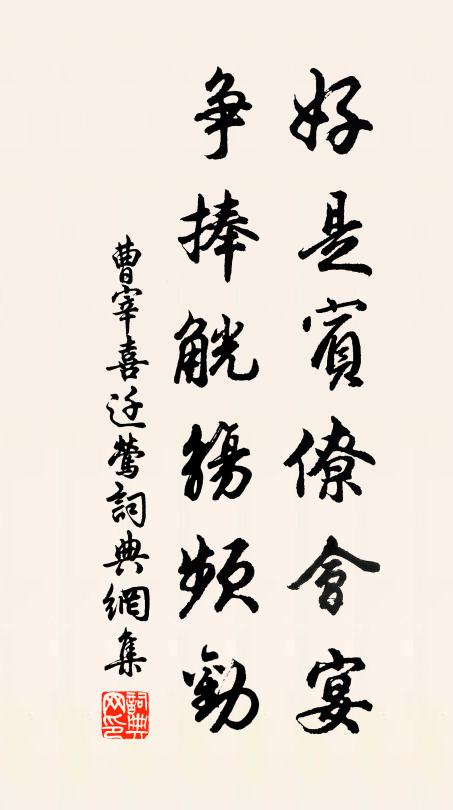 好是賓僚會宴
争捧觥觴頻勸
曹宰喜迁鶯詞典網集
詞典网印